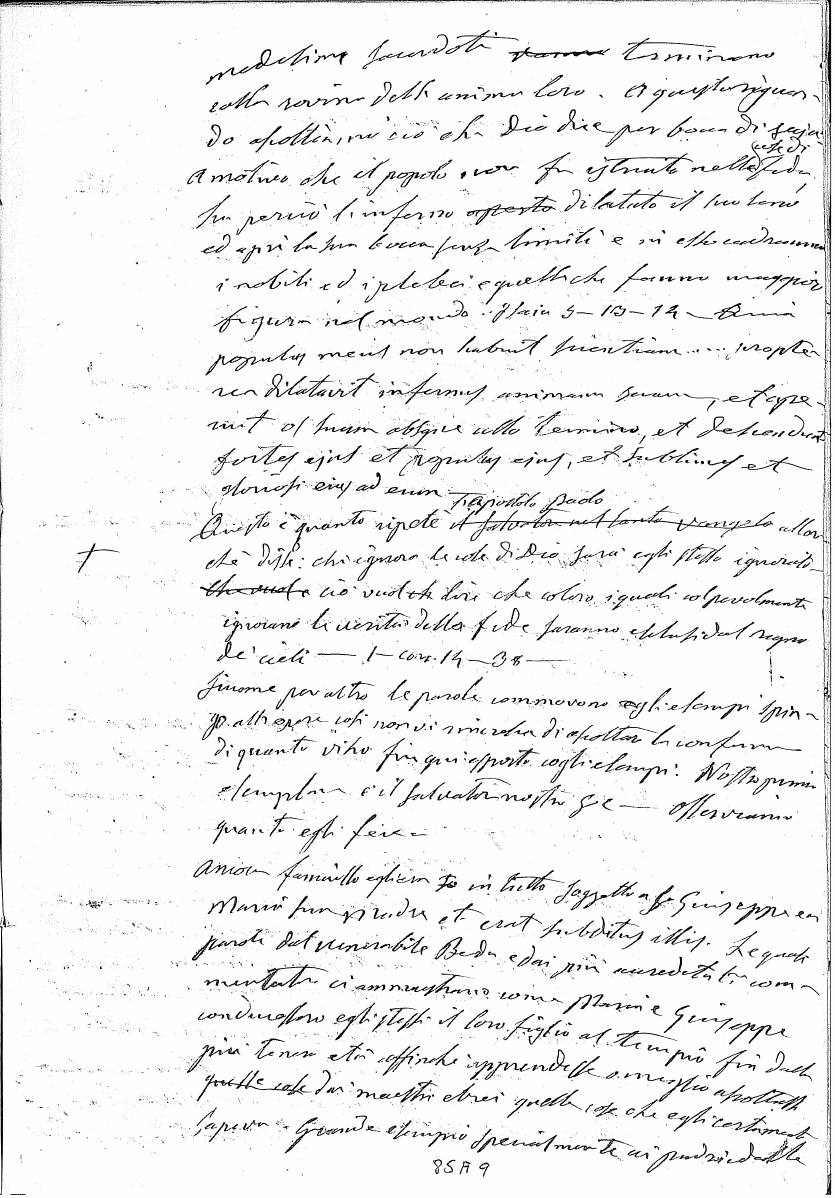 medesimi sacerdoti terminano
colla rovina delle anime loro. A questo riguar-
do ascoltiamo ciò che Dio dice per bocca di
cose di
A motivo che il popolo non fu istruito nelle fede,
ha perciò l'inferno aperto dilatato il suo seno
ed aprì la sua bocca senza limiti e in esso cadranno
i nobili ed i plebei e quelli che fanno maggior
figura nel mondo. Isaia 5-13-14 - Quia
populus meus non habuit scientiam.... propte-
rea dilatavit infernus animam suam, et ape-
ruit os suum absque ullo termino, et descendent
fortes ejus et populus ejus, et sublimes et
gloriosi ejus ad eum
l'apostolo Paolo
Questo è quanto ripete il Salvatore nel santo vangelo allor
che disse: chi ignora le cose di Dio sarà egli stesso ignorato.
Che vuole ciò vuol dire che coloro i quali colpevolmente
ignorano le verità della fede saranno esclusi dal regno
de' cieli — I - Cor. 14 - 38 —
Siccome per altro le parole commovono e gli esempi spin-
gono alle opere così non vi rincresca di ascoltare la conferma
di quanto vi ho fin qui esposto cogli esempi. Nostro primo
esemplare è il Salvatore nostro G C — Osserviamo
quanto egli fece -
Ancora fanciullo egli era in tutto soggetto a S. Giuseppe e a
Maria sua madre et erat subditus illis. Le quali
parole dal venerabile Beda e dai più accreditati com-
mentate ci ammaestrano come Maria e Giuseppe
conducessero eglino stessi il loro figlio al tempio fin dalla
più tenera età affinchè apprendesse o meglio ascoltasse
quelle cose dai maestri ebrei quelle cose che egli certamente
sapeva. Grande esempio specialmente ai padri e alle
85A9